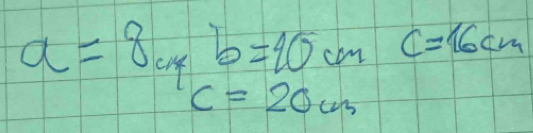 a = 8cm b = 10cm c = 16cm
c = 20cm